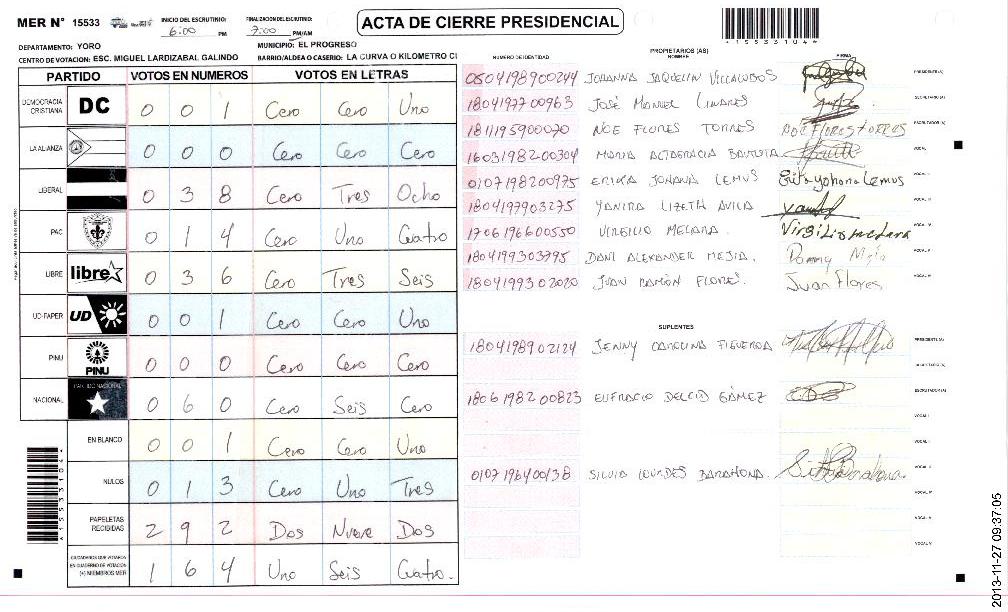 MER N° 15533
INICIO DEL ESCRUTINIO: 6:00 PM
FINALIZACIÓN DEL ESCRUTINIO: 7:00 PM/AM
ACTA DE CIERRE PRESIDENCIAL
*15533104*
DEPARTAMENTO: YORO
MUNICIPIO: EL PROGRESO
CENTRO DE VOTACION: ESC. MIGUEL LARDIZABAL GALINDO
BARRIO/ALDEA O CASERIO: LA CURVA O KILOMETRO CI
PARTIDO VOTOS EN NUMEROS VOTOS EN LETRAS
DEMOCRACIA CRISTIANA DC 0 0 1 Cero Cero Uno
LA ALIANZA 0 0 0 Cero Cero Cero
LIBERAL 0 3 8 Cero Tres Ocho
PAC 0 1 4 Cero Uno Cuatro
LIBRE libre 0 3 6 Cero Tres Seis
UD-FAPER UD 0 0 1 Cero Cero Uno
PINU PINU 0 0 0 Cero Cero Cero
NACIONAL PARTIDO NACIONAL 0 6 0 Cero Seis Cero
EN BLANCO 0 0 1 Cero Cero Uno
NULOS 0 1 3 Cero Uno Tres
PAPELETAS RECIBIDAS 2 9 2 Dos Nueve Dos
CIUDADANOS QUE VOTARON EN CUADERNO DE VOTACION (+) MIEMBROS MER 1 6 4 Uno Seis Cuatro.
*15533104*
PROPIETARIOS (AS)
NUMERO DE IDENTIDAD NOMBRE FIRMA
0504198900244 JOHANNA JAQUELIN VILLALOBOS PRESIDENTE (A)
1804197700963 JOSÉ MANUEL LINARES SECRETARIO (A)
1811195900070 NOE FLORES TORRES NOE FLORES torres ESCRUTADOR (A)
1603198200304 MARIA ALTAGRACIA BAUTISTA VOCAL I
0107198200975 ERIKA JOHANA LEMUS Erika yohana Lemus
1804197903275 YANIRA LIZETH AVILA
1706196600550 VIRGILIO MELARA Virgilio melara
1804199303795 DANI ALEXANDER MEJIA.
1804199302020 JUAN RAMÓN FLORES. Juan Flores
SUPLENTES
1804198902124 JENNY CAROLINA FIGUEROA PRESIDENTE (A)
SECRETARIO (A)
1806198200823 EUFRACIO DELCID GÁMEZ ESCRUTADOR (A)
VOCAL I
VOCAL II
0107196400138 SILVIA LOURDES BARAHONA. VOCAL III
VOCAL IV
VOCAL V
VOCAL VI
2013-11-27 09:37:05